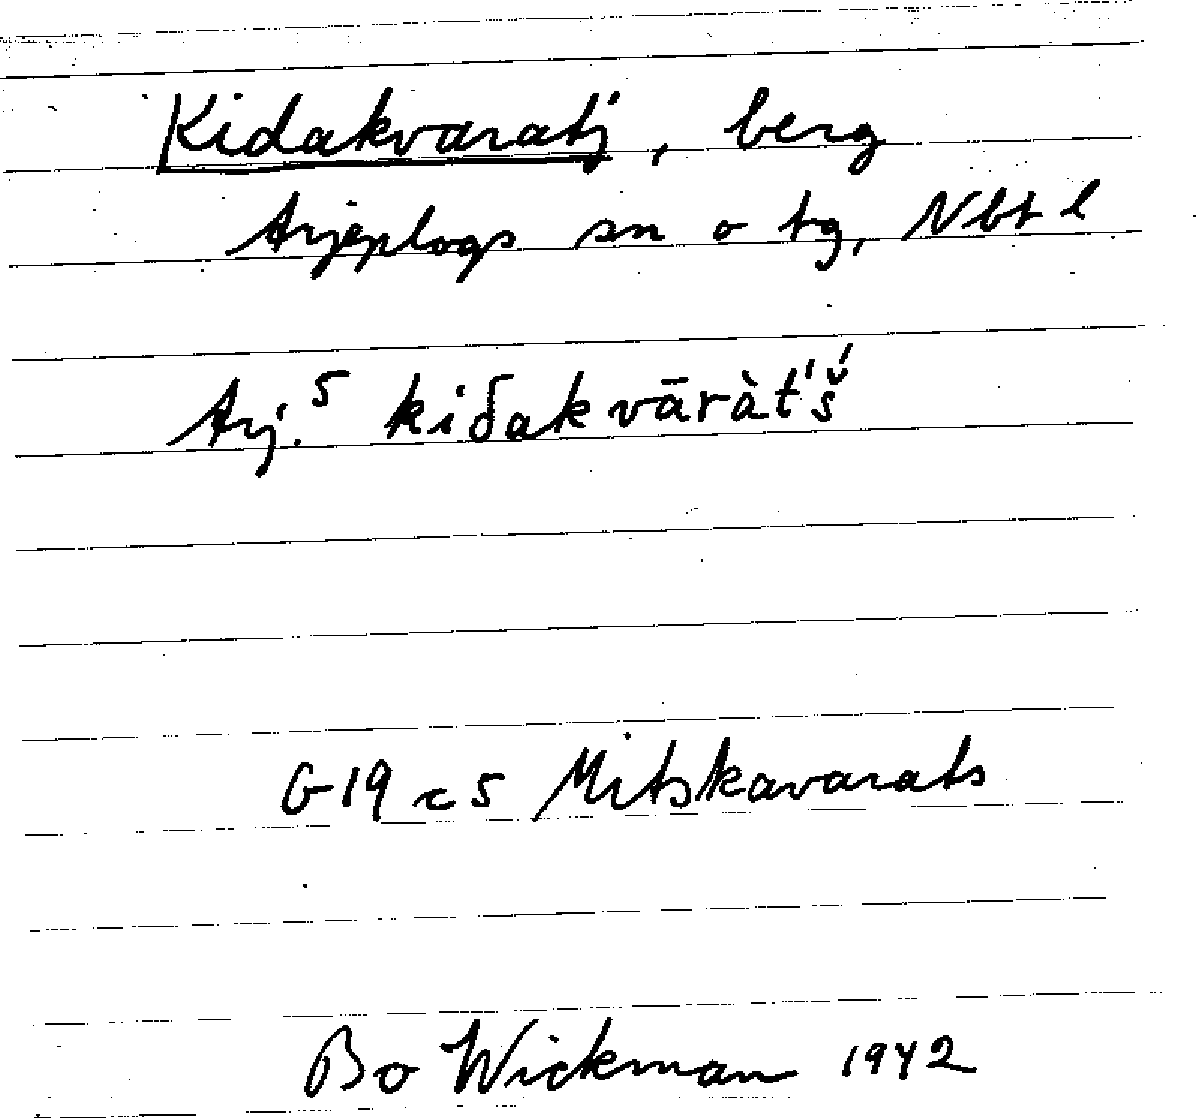 Kidakvaratj, berg
Arjeplogs sn o tg, Nbt l
Arj. S kiδakvāràt́š́
G 19 c 5 Mitskavarats
Bo Wickman 1942